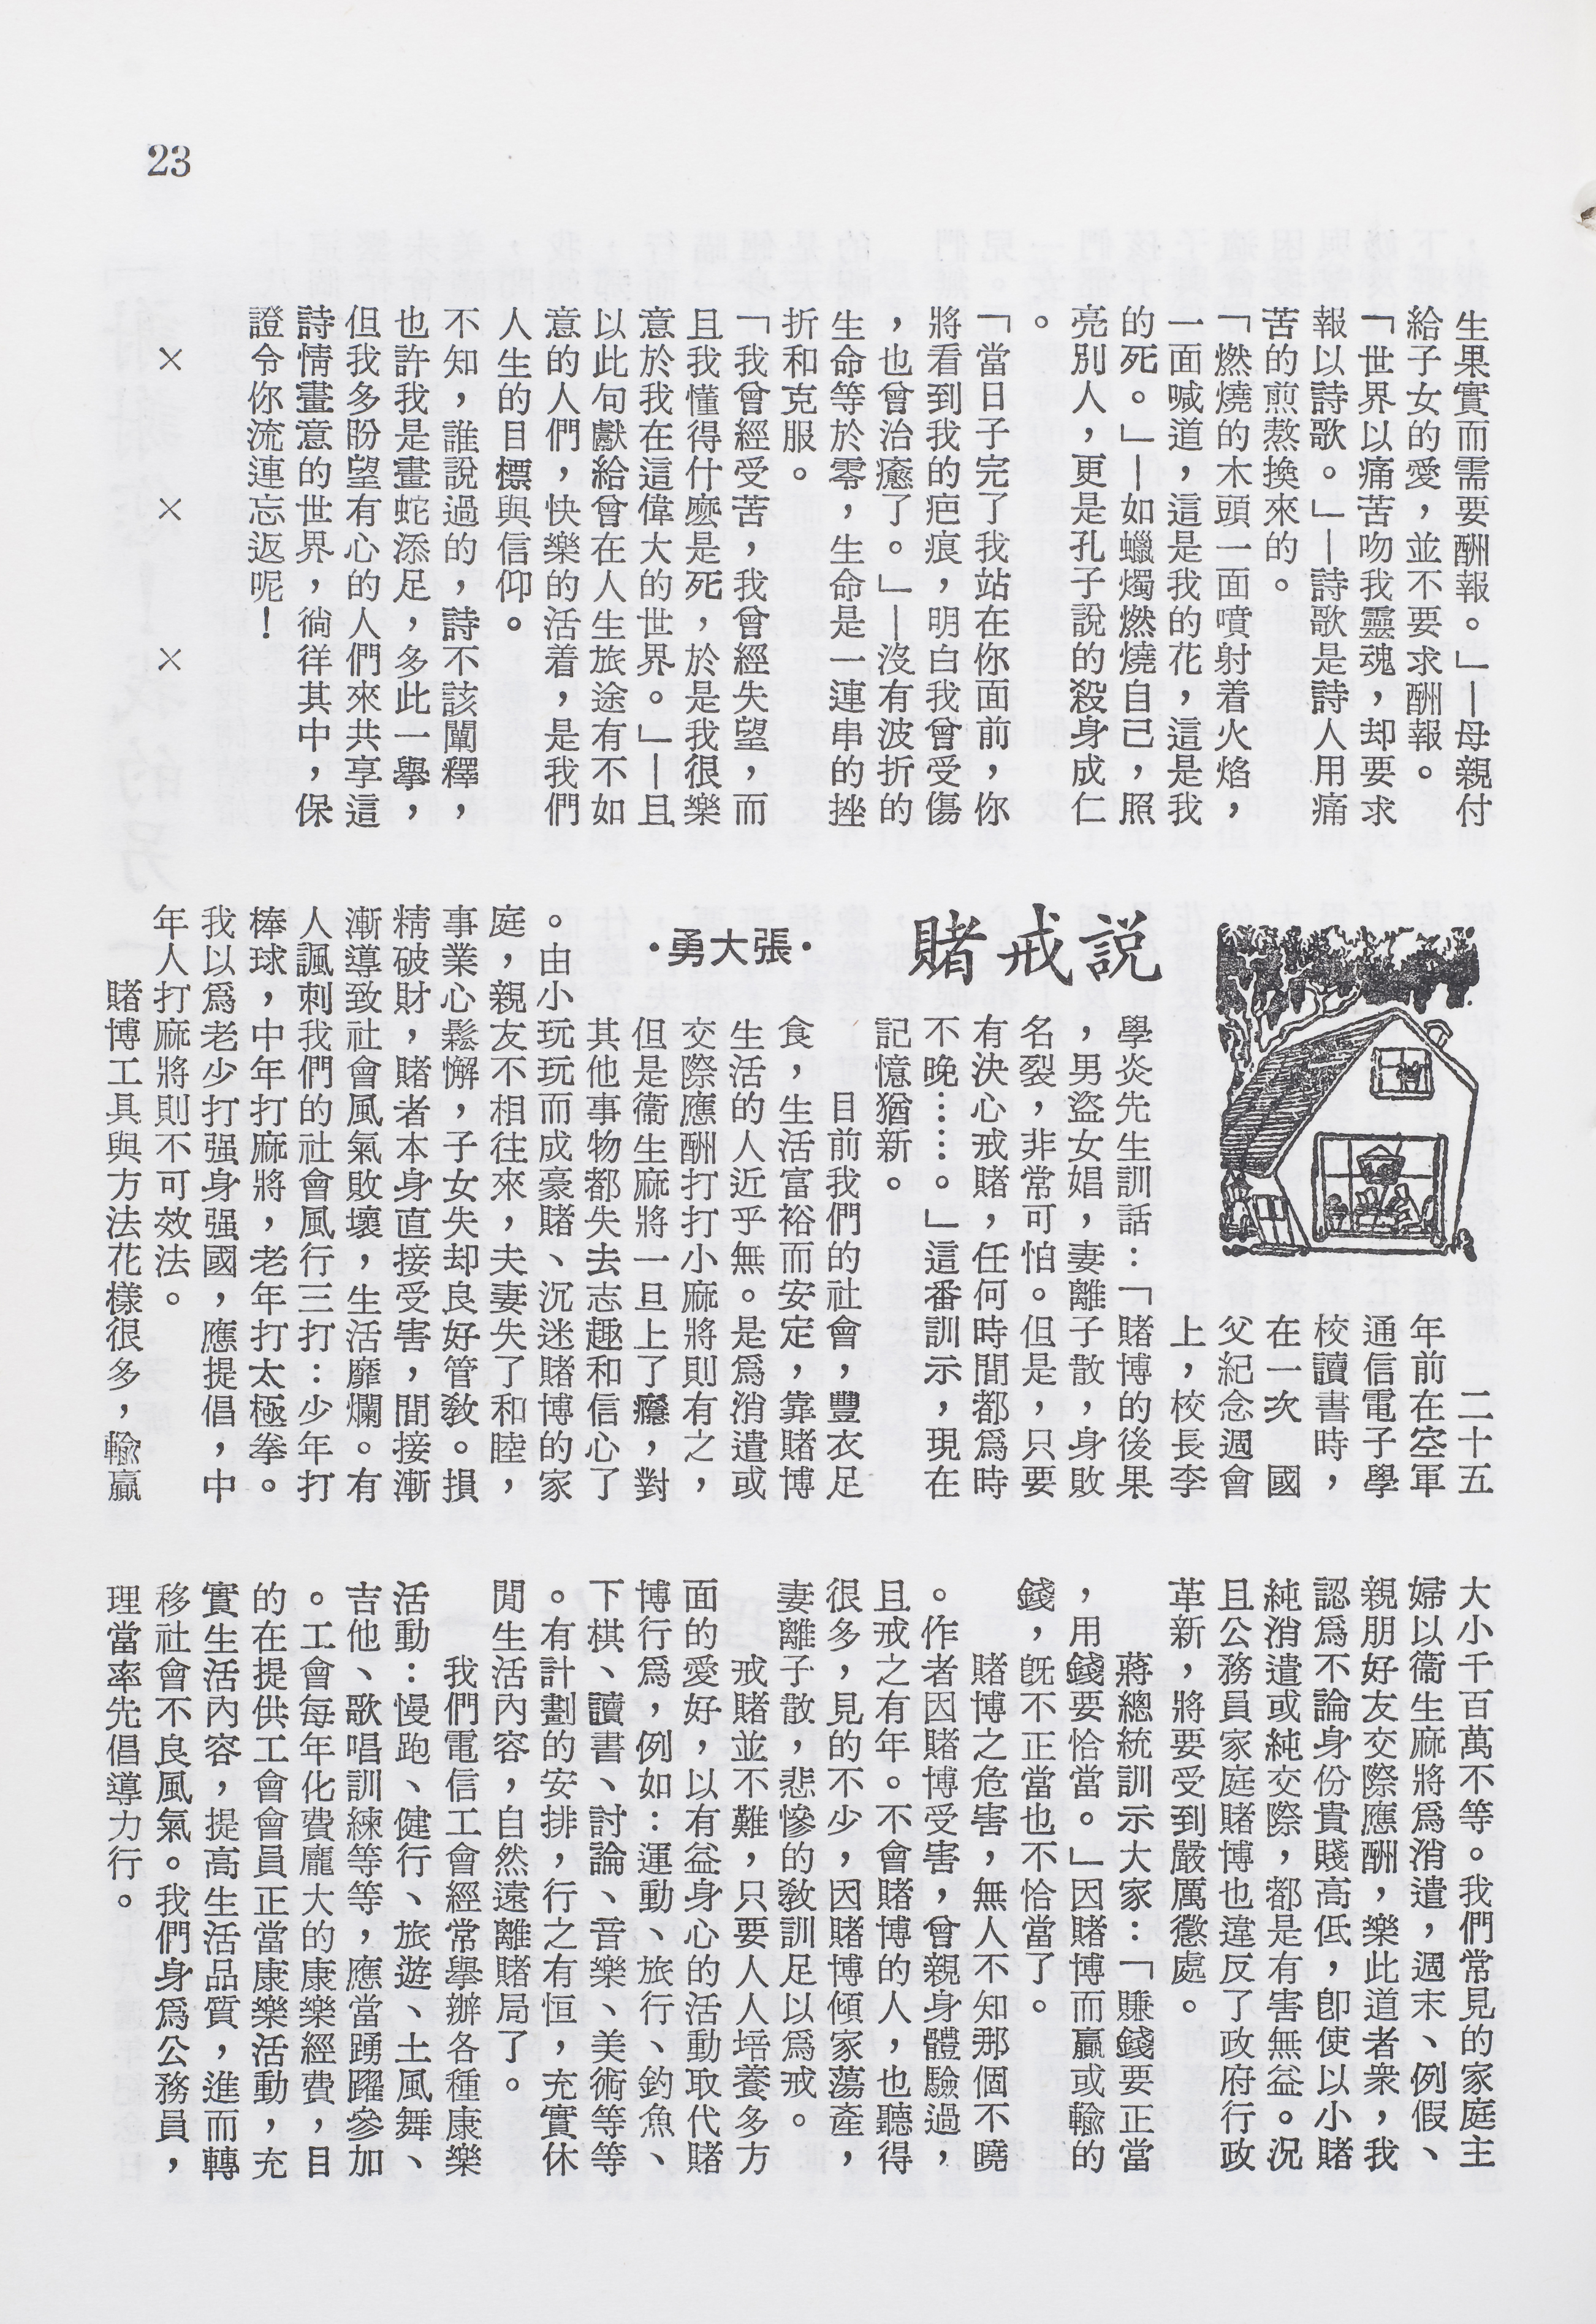 23
生果實而需要酬報。」—母親付
給子女的愛，並不要求酬報。
「世界以痛苦吻我靈魂，却要求
報以詩歌。」—詩歌是詩人用痛
苦的煎熬換來的。
「燃燒的木頭一面噴射着火焰，
一面喊道，這是我的花，這是我
的死。」—如蠟燭燃燒自己，照
亮別人，更是孔子說的殺身成仁
。
「當日子完了我站在你面前，你
將看到我的疤痕，明白我曾受傷
，也曾治癒了。」—沒有波折的
生命等於零，生命是一連串的挫
折和克服。
「我曾經受苦，我曾經失望，而
且我懂得什麼是死，於是我很樂
意於我在這偉大的世界。」—且
以此句獻給曾在人生旅途有不如
意的人們，快樂的活着，是我們
人生的目標與信仰。
不知，誰說過的，詩不該闡釋，
也許我是畫蛇添足，多此一舉，
但我多盼望有心的人們來共享這
詩情畫意的世界，徜徉其中，保
證令你流連忘返呢！
× × ×
說戒賭
·張大勇·
二十五
年前在空軍
通信電子學
校讀書時，
在一次　國
父紀念週會
上，校長李
學炎先生訓話：「賭博的後果
，男盜女娼，妻離子散，身敗
名裂，非常可怕。但是，只要
有決心戒賭，任何時間都爲時
不晚……。」這番訓示，現在
記憶猶新。
目前我們的社會，豐衣足
食，生活富裕而安定，靠賭博
生活的人近乎無。是爲消遣或
交際應酬打打小麻將則有之，
但是衞生麻將一旦上了癮，對
其他事物都失去志趣和信心了
。由小玩玩而成豪賭、沉迷賭博的家
庭，親友不相往來，夫妻失了和睦，
事業心鬆懈，子女失却良好管教。損
精破財，賭者本身直接受害，間接漸
漸導致社會風氣敗壞，生活靡爛。有
人諷刺我們的社會風行三打：少年打
棒球，中年打麻將，老年打太極拳。
我以爲老少打强身强國，應提倡，中
年人打麻將則不可效法。
賭博工具與方法花樣很多，輸贏
大小千百萬不等。我們常見的家庭主
婦以衞生麻將爲消遣，週末、例假、
親朋好友交際應酬，樂此道者衆，我
認爲不論身份貴賤高低，卽使以小賭
純消遣或純交際，都是有害無益。況
且公務員家庭賭博也違反了政府行政
革新，將要受到嚴厲懲處。
蔣總統訓示大家：「賺錢要正當
，用錢要恰當。」因賭博而贏或輸的
錢，旣不正當也不恰當了。
賭博之危害，無人不知那個不曉
。作者因賭博受害，曾親身體驗過，
且戒之有年。不會賭博的人，也聽得
很多，見的不少，因賭博傾家蕩產，
妻離子散，悲慘的教訓足以爲戒。
戒賭並不難，只要人人培養多方
面的愛好，以有益身心的活動取代賭
博行爲，例如：運動、旅行、釣魚、
下棋、讀書、討論、音樂、美術等等
。有計劃的安排，行之有恒，充實休
閒生活內容，自然遠離賭局了。
我們電信工會經常舉辦各種康樂
活動：慢跑、健行、旅遊、土風舞、
吉他、歌唱訓練等等，應當踴躍參加
。工會每年化費龐大的康樂經費，目
的在提供工會會員正當康樂活動，充
實生活內容，提高生活品質，進而轉
移社會不良風氣。我們身爲公務員，
理當率先倡導力行。